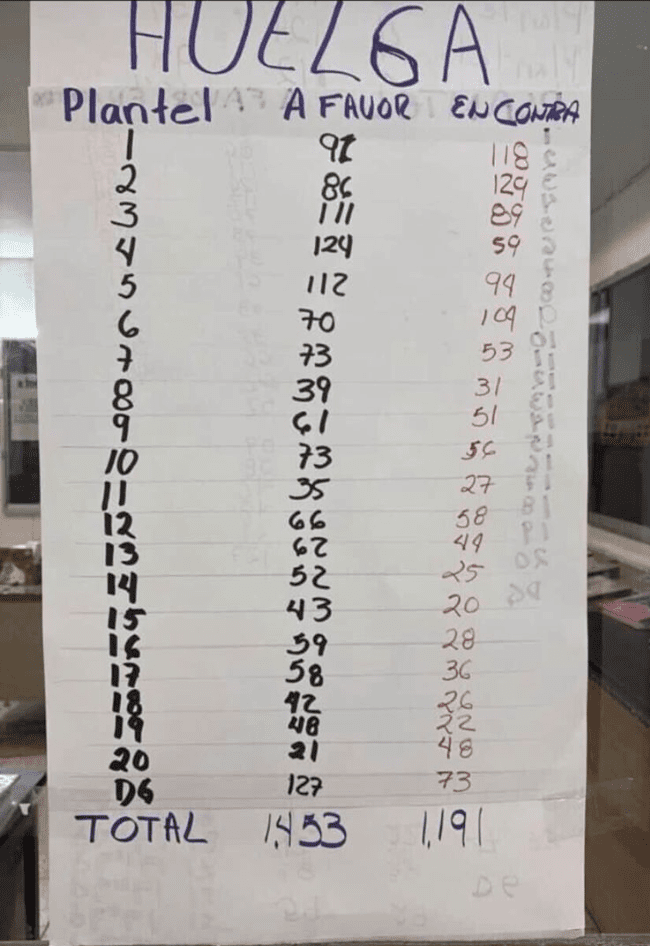 HUELGA
Plantel A FAVOR EN CONTRA
1 91 118
2 86 129
3 111 89
4 124 59
5 112 94
6 70 104
7 73 53
8 39 31
9 61 51
10 73 56
11 35 27
12 66 58
13 62 44
14 52 25
15 43 20
16 59 28
17 58 36
18 42 26
19 48 22
20 21 48
DG 127 73
TOTAL 1,453 1,191